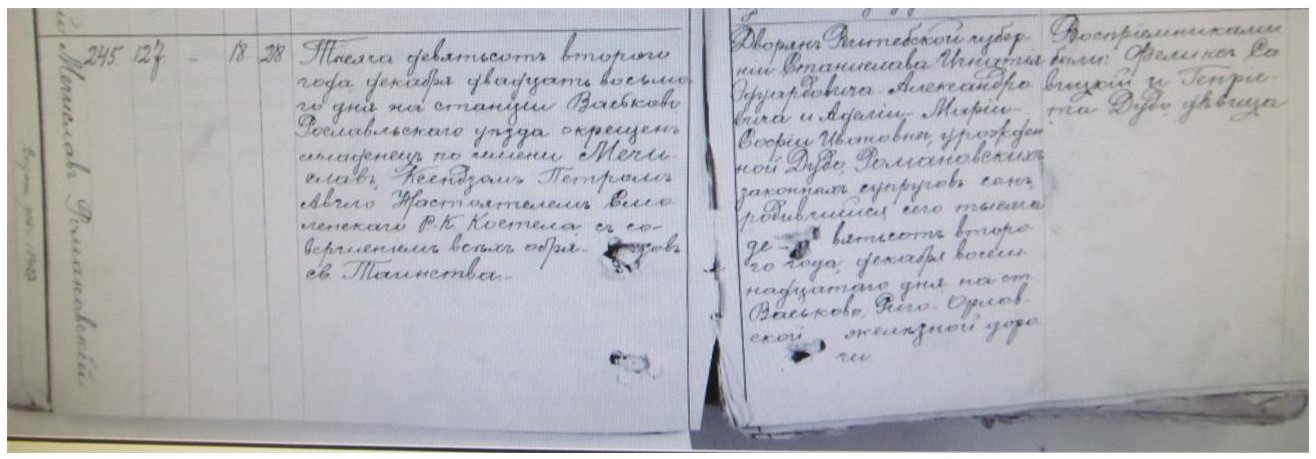 Мечиславъ Романовскій
245 127 - 18 28
Тысяча девятьсотъ второго
года декабря двадцать восьма
го дня на станціи Васьково
Рославльскаго уѣзда окрещенъ
младенецъ по имени Мечи-
славъ, Ксендзомъ Петромъ
Авгло Настоятелемъ Смо
ленскаго Р.-К. Костела, съ со-
вершеніемъ всѣхъ обря- довъ
св. Таинства.
Дворянъ Витебской губер-
ніи Станислава Игнатія
Эдуардовича-Александро
вича и Аделіи-Маріи-
Софіи Ивановны, урожден
ной Дубо, Романовскихъ
законныхъ супруговъ сынъ,
родившійся сего тысяча
де- вятьсотъ второ-
го года, декабря восем
надцатаго дня, на ст.
Васьково, Риго-Орлов.
ской желѣзной доро
ги
Воспріемниками
были: Феликсъ Са
вицкій и Генріе-
та Дубо, дѣвица